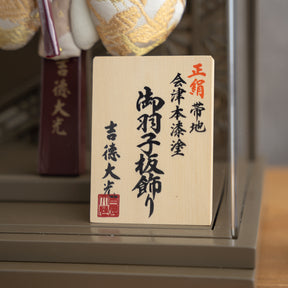 正絹帯地
会津本漆塗
御羽子板飾り
吉徳大光
吉德大光